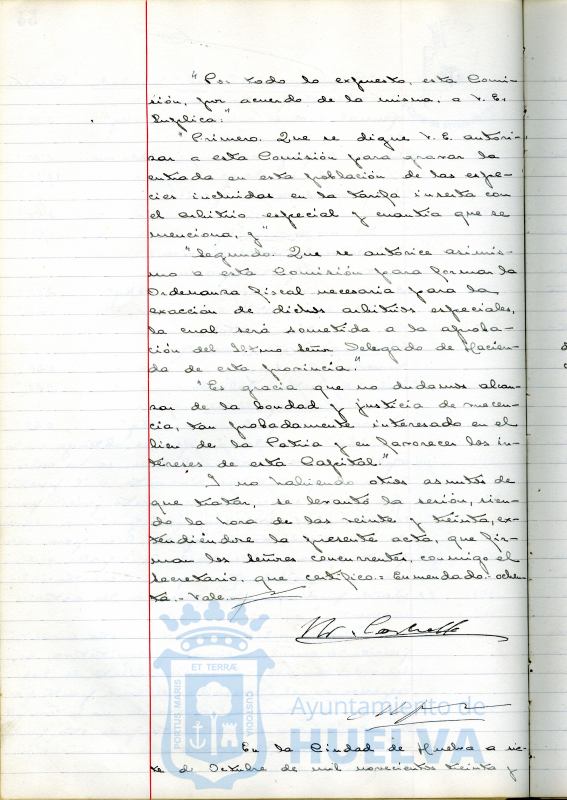 "Por todo lo expuesto, esta Comi-
sión, por acuerdo de la misma, a V. E.
Suplica:"
"Primero. Que se digne V. E. autori-
zar a esta Comisión para gravar la
entrada en esta población de las espe-
cies incluidas en la tarifa inserta con
el arbitrio especial y cuantía que se
menciona, y"
"Segundo. Que se autorice asimis-
mo a esta Comisión para formar la
Ordenanza fiscal necesaria para la
exacción de dichos arbitrios especiales,
la cual será sometida a la aproba-
ción del Iltmo Señor Delegado de Hacien-
da de esta provincia."
"Es gracia que no dudamos alcan-
zar de la bondad y justicia de vuecen-
cia, tan probadamente interesado en el
bien de la Patria y en favorecer los in-
tereses de esta Capital."
Y no habiendo otros asuntos de
que tratar, se levantó la sesión, sien-
do la hora de las veinte y treinta, ex-
tendiéndose la presente acta, que fir-
man los señores concurrentes, conmigo el
Secretario, que certifico.= Enmendado.- ochen-
ta.- Vale.
ET TERRÆ
PORTUS MARIS
CUSTODIA
Ayuntamiento de
HUELVA
En la Ciudad de Huelva a sie-
te de Octubre de mil novecientos treinta y